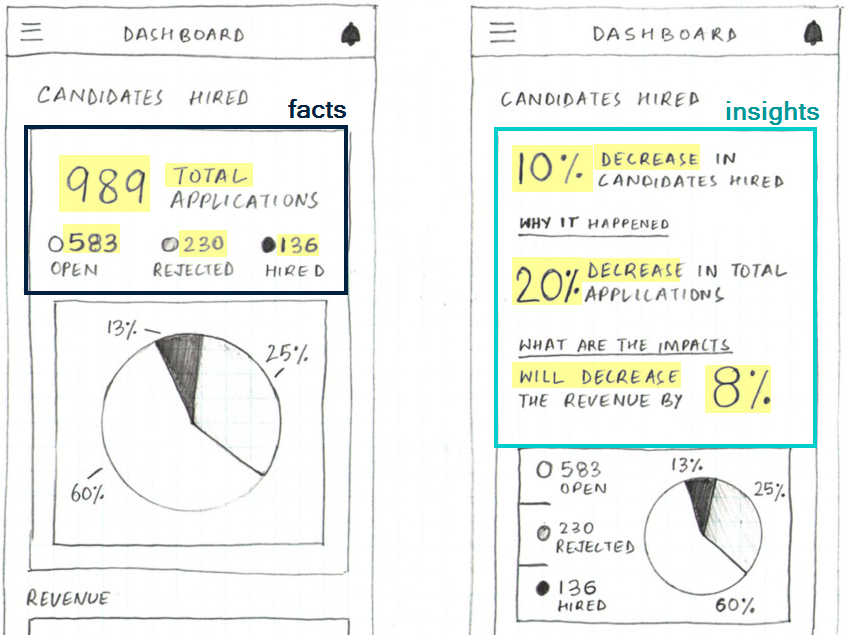 DASHBOARD
CANDIDATES HIRED
facts
989 TOTAL
APPLICATIONS
583 230 136
OPEN REJECTED HIRED
13%
25%
60%
REVENUE
DASHBOARD
CANDIDATES HIRED
insights
10% DECREASE IN
CANDIDATES HIRED
WHY IT HAPPENED
20% DECREASE IN TOTAL
APPLICATIONS
WHAT ARE THE IMPACTS
WILL DECREASE
THE REVENUE BY 8%
583
OPEN
230
REJECTED
136
HIRED
13%
25%
60%